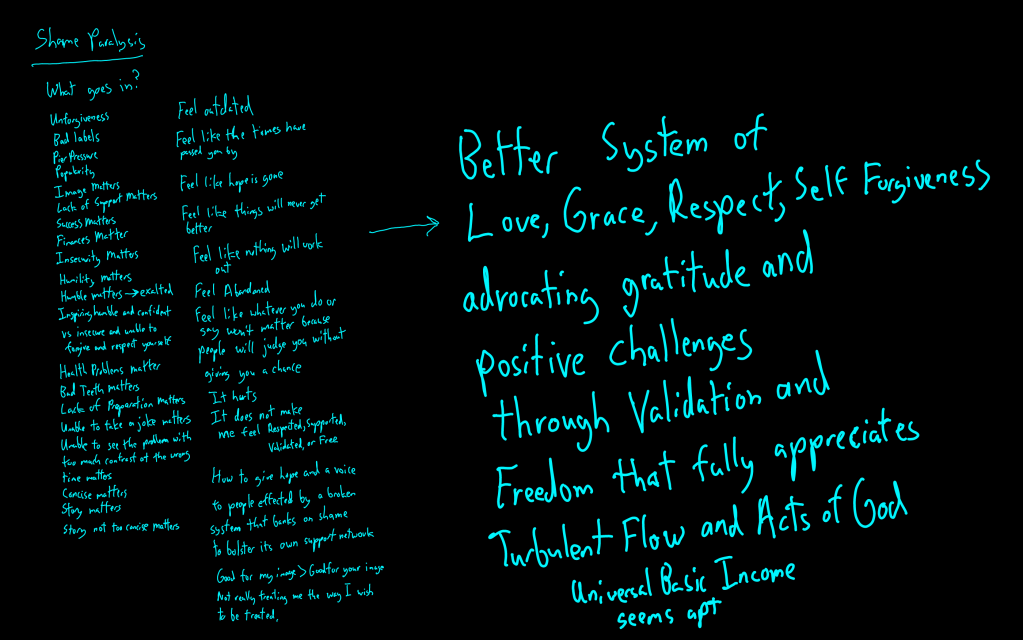 Shame Paralysis
What goes in?
Unforgiveness
Bad labels
Peer Pressure
Popularity
Image Matters
Lack of Support Matters
Success Matters
Finances Matter
Insecurity Matters
Humility matters
Humble matters → exalted
Inspiring humble and confident
vs insecure and unable to
forgive and respect yourself
Health Problems matter
Bad Teeth matters
Lack of Preparation matters
Unable to take a joke matters
Unable to see the problem with
too much contrast at the wrong
time matters
Concise matters
Story matters
Story not too concise matters
Feel outdated
Feel like the times have
passed you by
Feel like hope is gone
Feel like things will never get
better
Feel like nothing will work
out
Feel Abandoned
Feel like whatever you do or
say won't matter because
people will judge you without
giving you a chance
It hurts
It does not make
me feel Respected, Supported,
Validated, or Free
How to give hope and a voice
to people effected by a broken
system that banks on shame
to bolster its own support network
Good for my image > Good for your image
Not really treating me the way I wish
to be treated.
→
Better System of
Love, Grace, Respect, Self Forgiveness
advocating gratitude and
positive challenges
through Validation and
Freedom that fully appreciates
Turbulent Flow and Acts of God
Universal Basic Income
seems apt